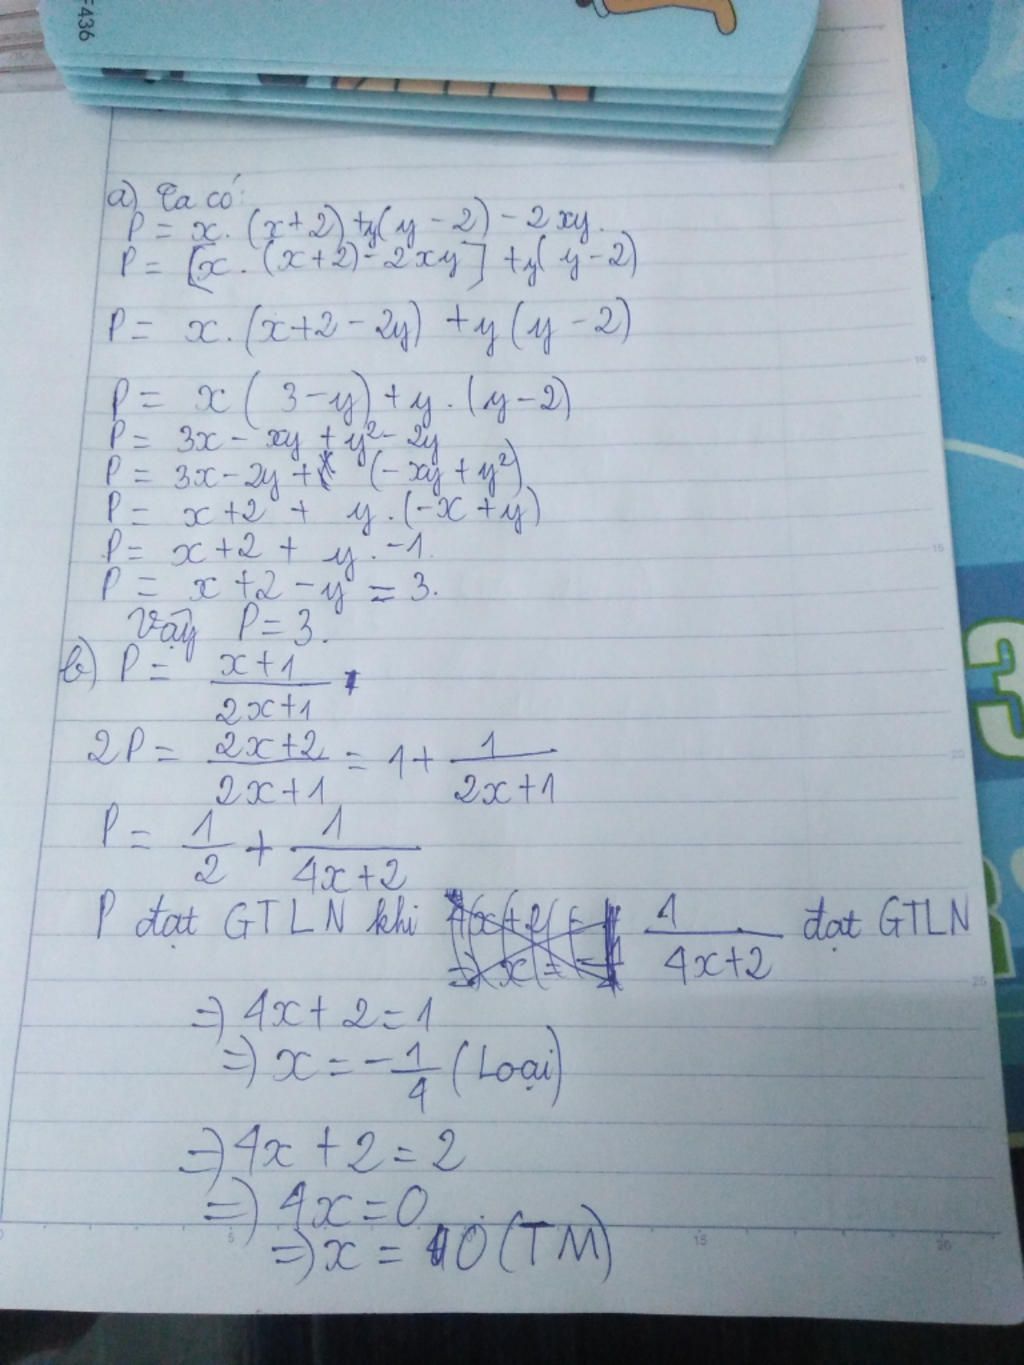 F436
a) Ta có:
P = x.(x+2)+y(y-2)-2xy.
P = [x.(x+2)-2xy]+y(y-2)
P = x.(x+2-2y)+y(y-2)
P = x(3-y)+y.(y-2)
P = 3x-xy+y²-2y
P = 3x-2y+(-xy+y²)
P = x+2+y.(-x+y)
P = x+2+y.-1.
P = x+2-y=3.
Vậy P=3.
b) P = \frac{x+1}{2x+1}
2P = \frac{2x+2}{2x+1} = 1+\frac{1}{2x+1}
P = \frac{1}{2}+\frac{1}{4x+2}
P đạt GTLN khi \frac{1}{4x+2} đạt GTLN
=> 4x+2=1
=> x=-\frac{1}{4} (Loại)
=> 4x+2=2
=> 4x=0
=> x=0 (TM)
5
10
15
20
25
5
15
20
3